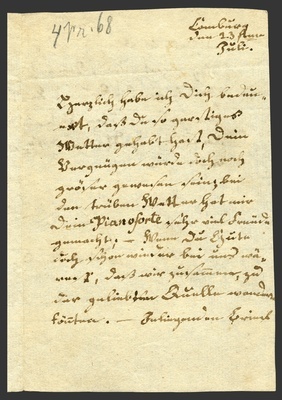 4 Pr. 68
Comburg
den 23 ten
Juli.
Herzlich habe ich Dich bedau-
ert, daß du so garstiges
Wetter gehabt hast, Dein
Vergnügen würde doch noch
größer gewesen sein; bei
dem trüben Wetter hat mir
Dein Pianoforte sehr viel Freude
gemacht. — Wenn Du
doch schon wieder bei uns wä-
rest, daß wir zusammen zu
der geliebten Quelle wandern
könnten. — Inliegenden